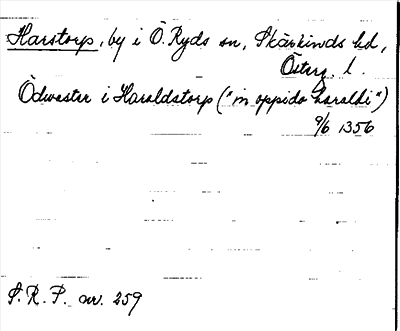 Harstorp, by i Ö. Ryds sn, Skärkinds hd,
Österg. l.
Ödwaster i Haroldstorp ("in oppido haraldi")
9/6 1356
S. R. P. nr. 259